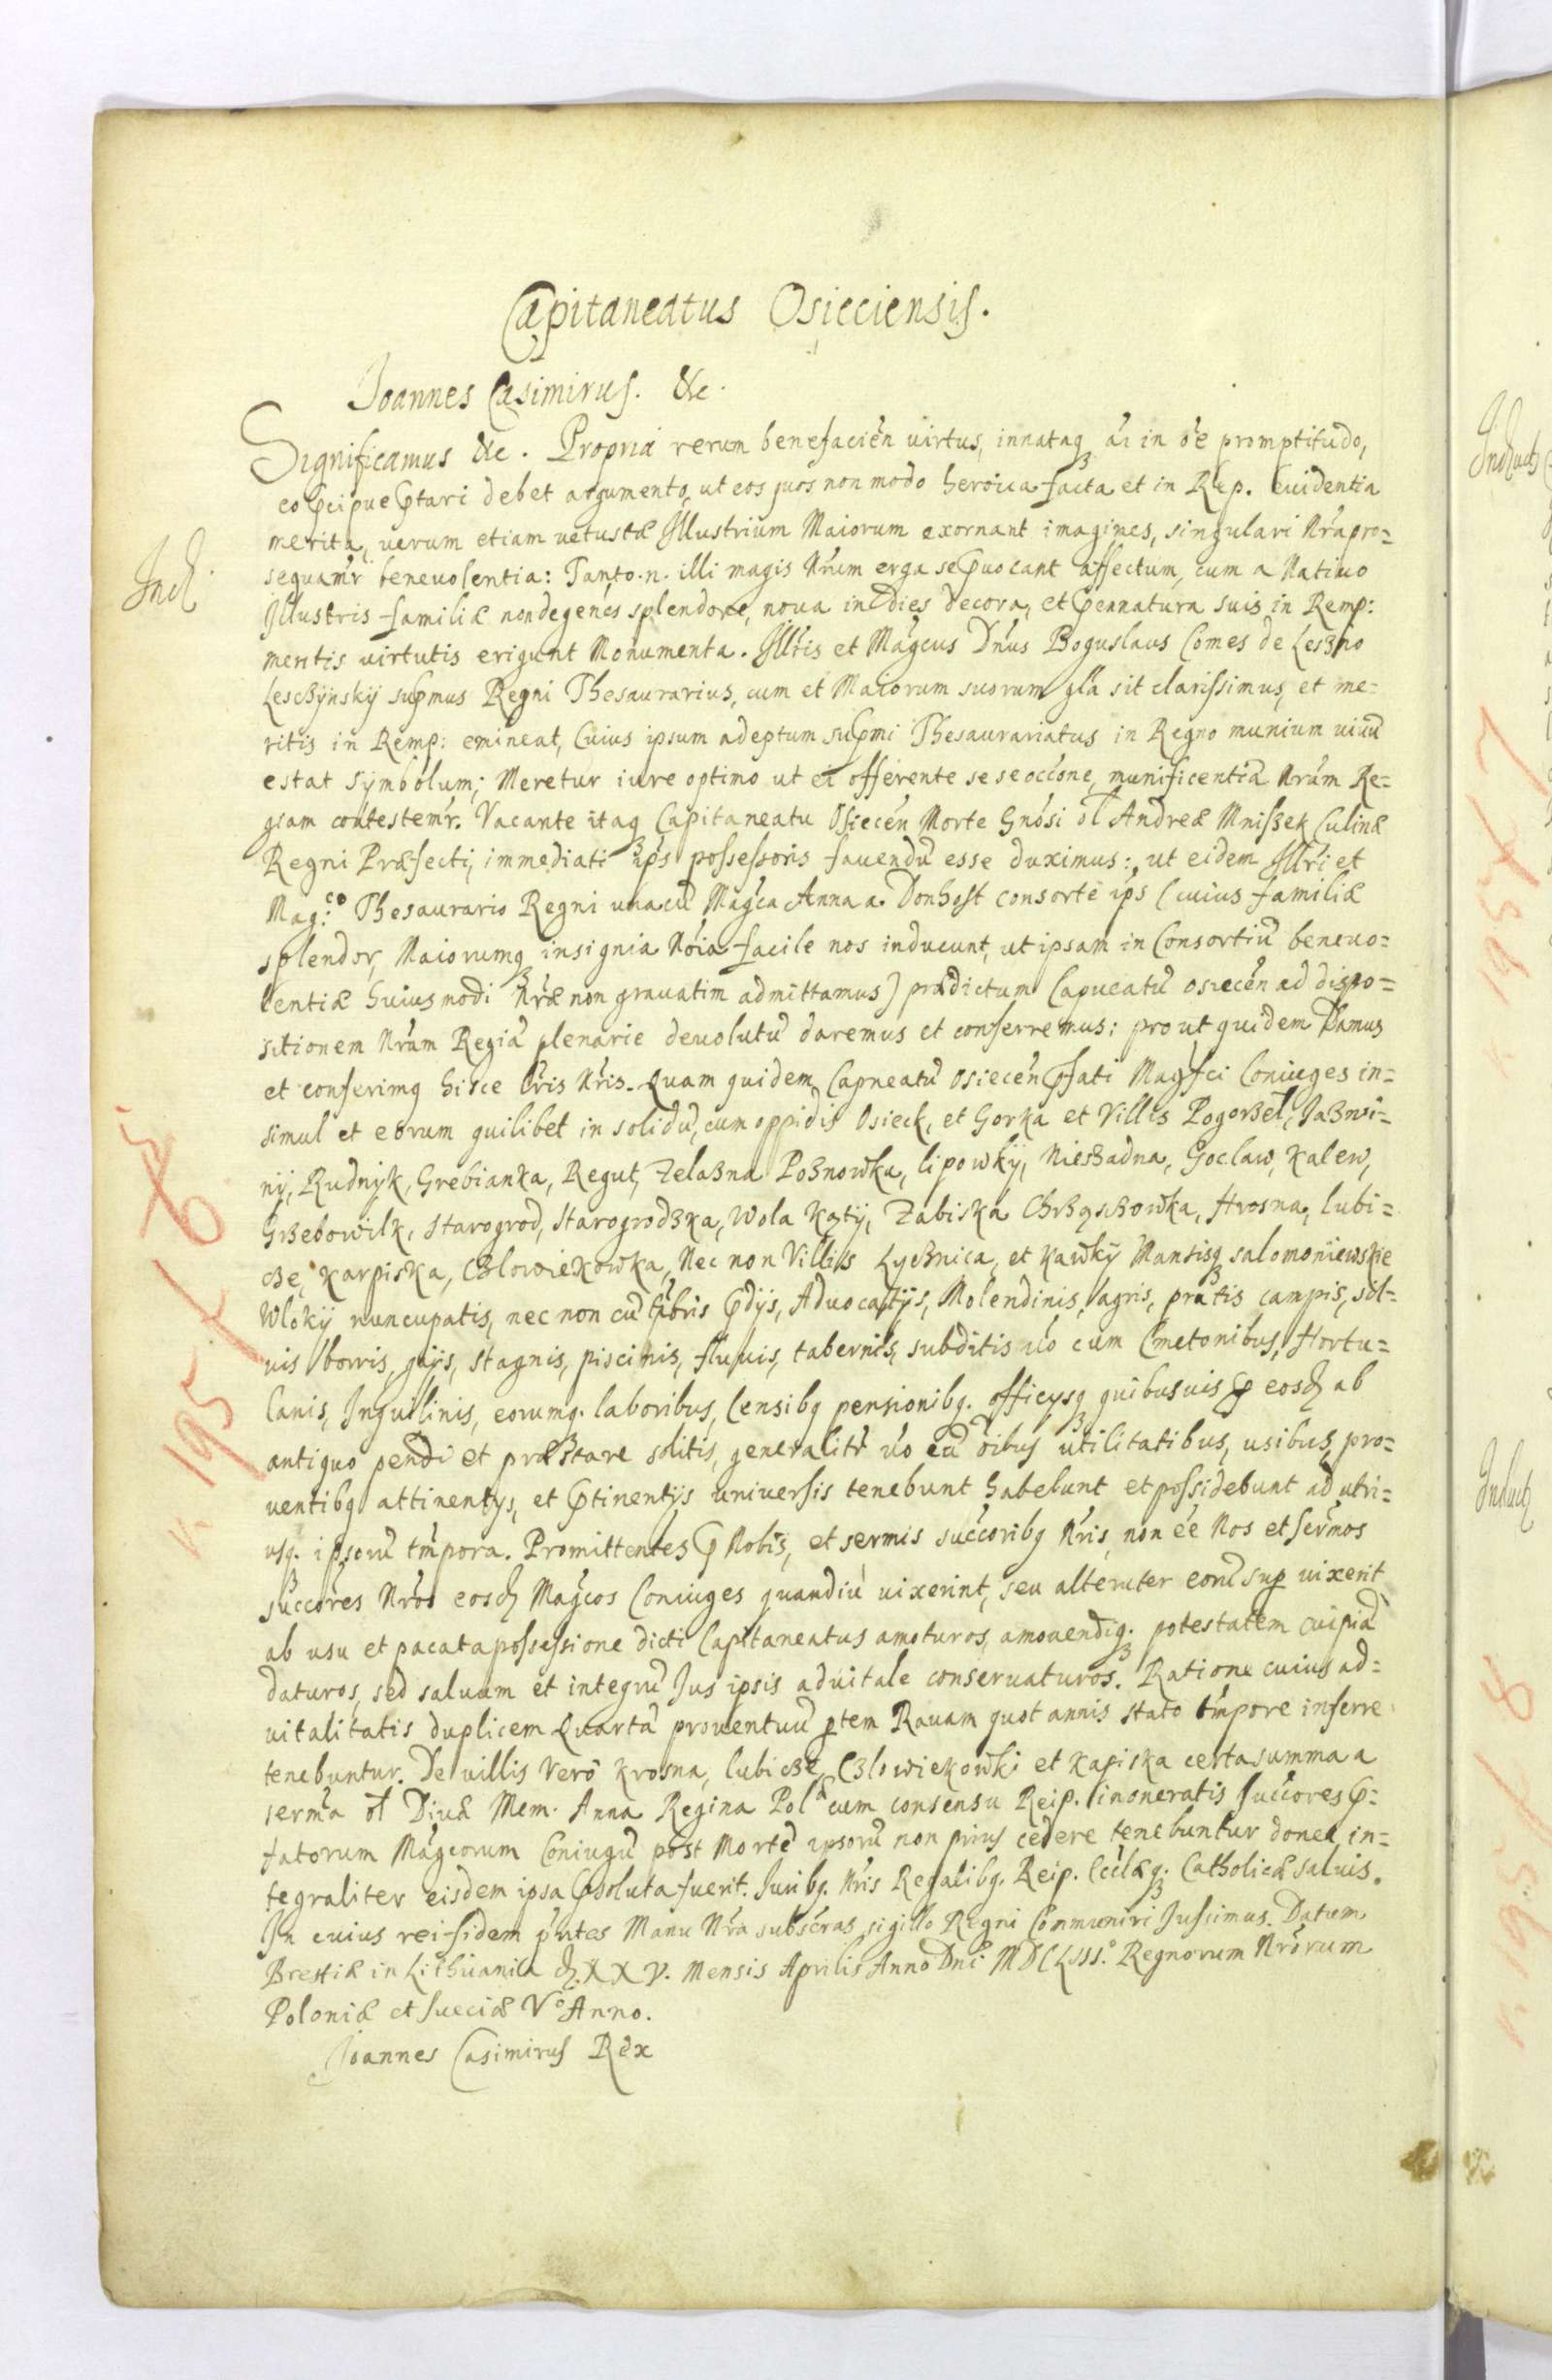 Capitaneatus Osieciensis.
Joannes Casimirus. &c.
Significamus &c. Propria rerum benefacién virtus, innataq, ãi in õe promptitudo,
eo p̃cipue p̃tari debet argumento, ut eos quos non modo heroica facta et in Rep. euidentia
merita, uerum etiam uetustæ Illustrium Maiorum exornant imagines, singulari Nr̃a pro=
sequam̃r beneuolentia: Tanto.n. illi magis Nr̃um erga se p̃uocant affectum, cum a Natiuo
Incl.
Illustris familiæ non degenes splendore, noua indies decora, et p̃ennatura suis in Remp:
meritis uirtutis erigunt Monumenta. Illr̃is et Mag̃cus Dñus Boguslaus Comes de Leszno
Lesczÿnskÿ sup̃mus Regni Thesaurarius, cum et Maiorum suorum gl̃a sit clarissimus, et me=
ritis in Remp: emineat, Cuius ipsum adeptum sup̃mi Thesaurariatus in Regno munium uiuũ
estat sÿmbolum; Meretur iure optimo ut ei offerente sese occõne, munificentia Nr̃am Re=
giam contestem̃r. Vacante itaq Capitaneatu Osiecén Morte Gnósi ol̃ Andreæ Mniszek Culinæ
Regni Præfecti, immediati ip̃s possessoris fauendũ esse duximus: ut eidem Illr̃i et
Mag:co Thesaurario Regni unacũ Mag̃ca Anna a Donhoff consorte ip̃s (cuius familiæ
splendor, Maiorumq insignia Nõia facile nos inducunt, ut ipsam in Consortiũ beneuo=
lentiæ huiusmodi Nr̃æ non grauatim admittamus) prædictum Capneatũ Osiecén ad dispo=
sitionem Nr̃am Regiã plenarie deuolutũ daremus et conferremus: prout quidem Damus
et conferimq hisce Lr̃is Nr̃is. Quam quidem Capneatũ Osiecén p̃fati Mag̃fci Coniuges in=
simul et eorum quilibet in solidũ, cum oppidis Osieck, et Gorka et Villis Pogorzel, Jazwi=
nÿ, Rudnÿk, Grebianka, Regut, Zelazna Poznowka, Lipowkÿ, Nieszadna, Goclaw, Kalew,
Grzebowilk, Starogrod, Starogrodzka, Wola Kątÿ, Zabiska Chrząszczowka, Krosna, Lubi=
cze, Karpiska, Człowiekowka, Nec non Villis Łycznica, et Kawkÿ Mansisq salomoniewskie
Wlokÿ nuncupatis, nec non cũ õibus p̃dijs, Aduocatijs, Molendinis, agris, pratis campis, sil=
uis borris, gaijs, stagnis, piscinis, fluuis, tabernis, subditis ũo cum Cmetonibus, Hortu=
lanis, Inquilinis, eorumq. laboribus, Censibq pensionibq. officijsq quibusuis p eosdem ab
antiquo pendi et præstare solitis, generalitr̃ ũo cũ õibus utilitatibus, usibus, pro=
uentibq attinentijs, et p̃tinentijs uniuersis tenebunt habebunt et possidebunt ad utri=
usq. ipsorũ tm̃pora. Promittentes p Nobis, et sermis succõribq Nr̃is, non ẽe Nos et ser̃mos
succõres Nr̃os eosdem Mag̃cos Coniuges quandiu uixerint, seu alteruter eorũ sup uixerit
ab usu et pacata possessione dicti Capitaneatus amoturos, amouendiq. potestatem cuipiã
daturos, sed saluum et integrũ Jus ipsis aduitale conseruaturos. Ratione cuius ad=
uitalitatis duplicem Quartã prouentuũ p̃tem Rauam quotannis stato tm̃pore inferre
tenebuntur. De uillis Verõ Krosna, Lubicze, Człowiekowki et Kapiska certa summa a
serm̃a ol̃ Diuæ Mem. Anna Regina Pol:a cum consensu Reip. inoneratis Succores p̃=
fatorum Mag̃corum Coniugũ post Mortẽ ipsorũ non prius cedere tenebuntur donec in=
tegraliter eisdem ipsa p̃soluta fuerit. Juribq. Nr̃is Regalibq. Reip. Eccl̃æq. Catholicæ saluis.
In cuius rei fidem p̃ntes Manu Nr̃a subscr̃as, sigillo Regni Communiri Jussimus. Datum
Brestiæ in Lithuania d. XXV. Mensis Aprilis Anno Dñi MDCLIII.o Regnorum Nr̃orum
Poloniæ et Sueciæ Vo Anno.
Joannes Casimirus Rex
Induct
Induct